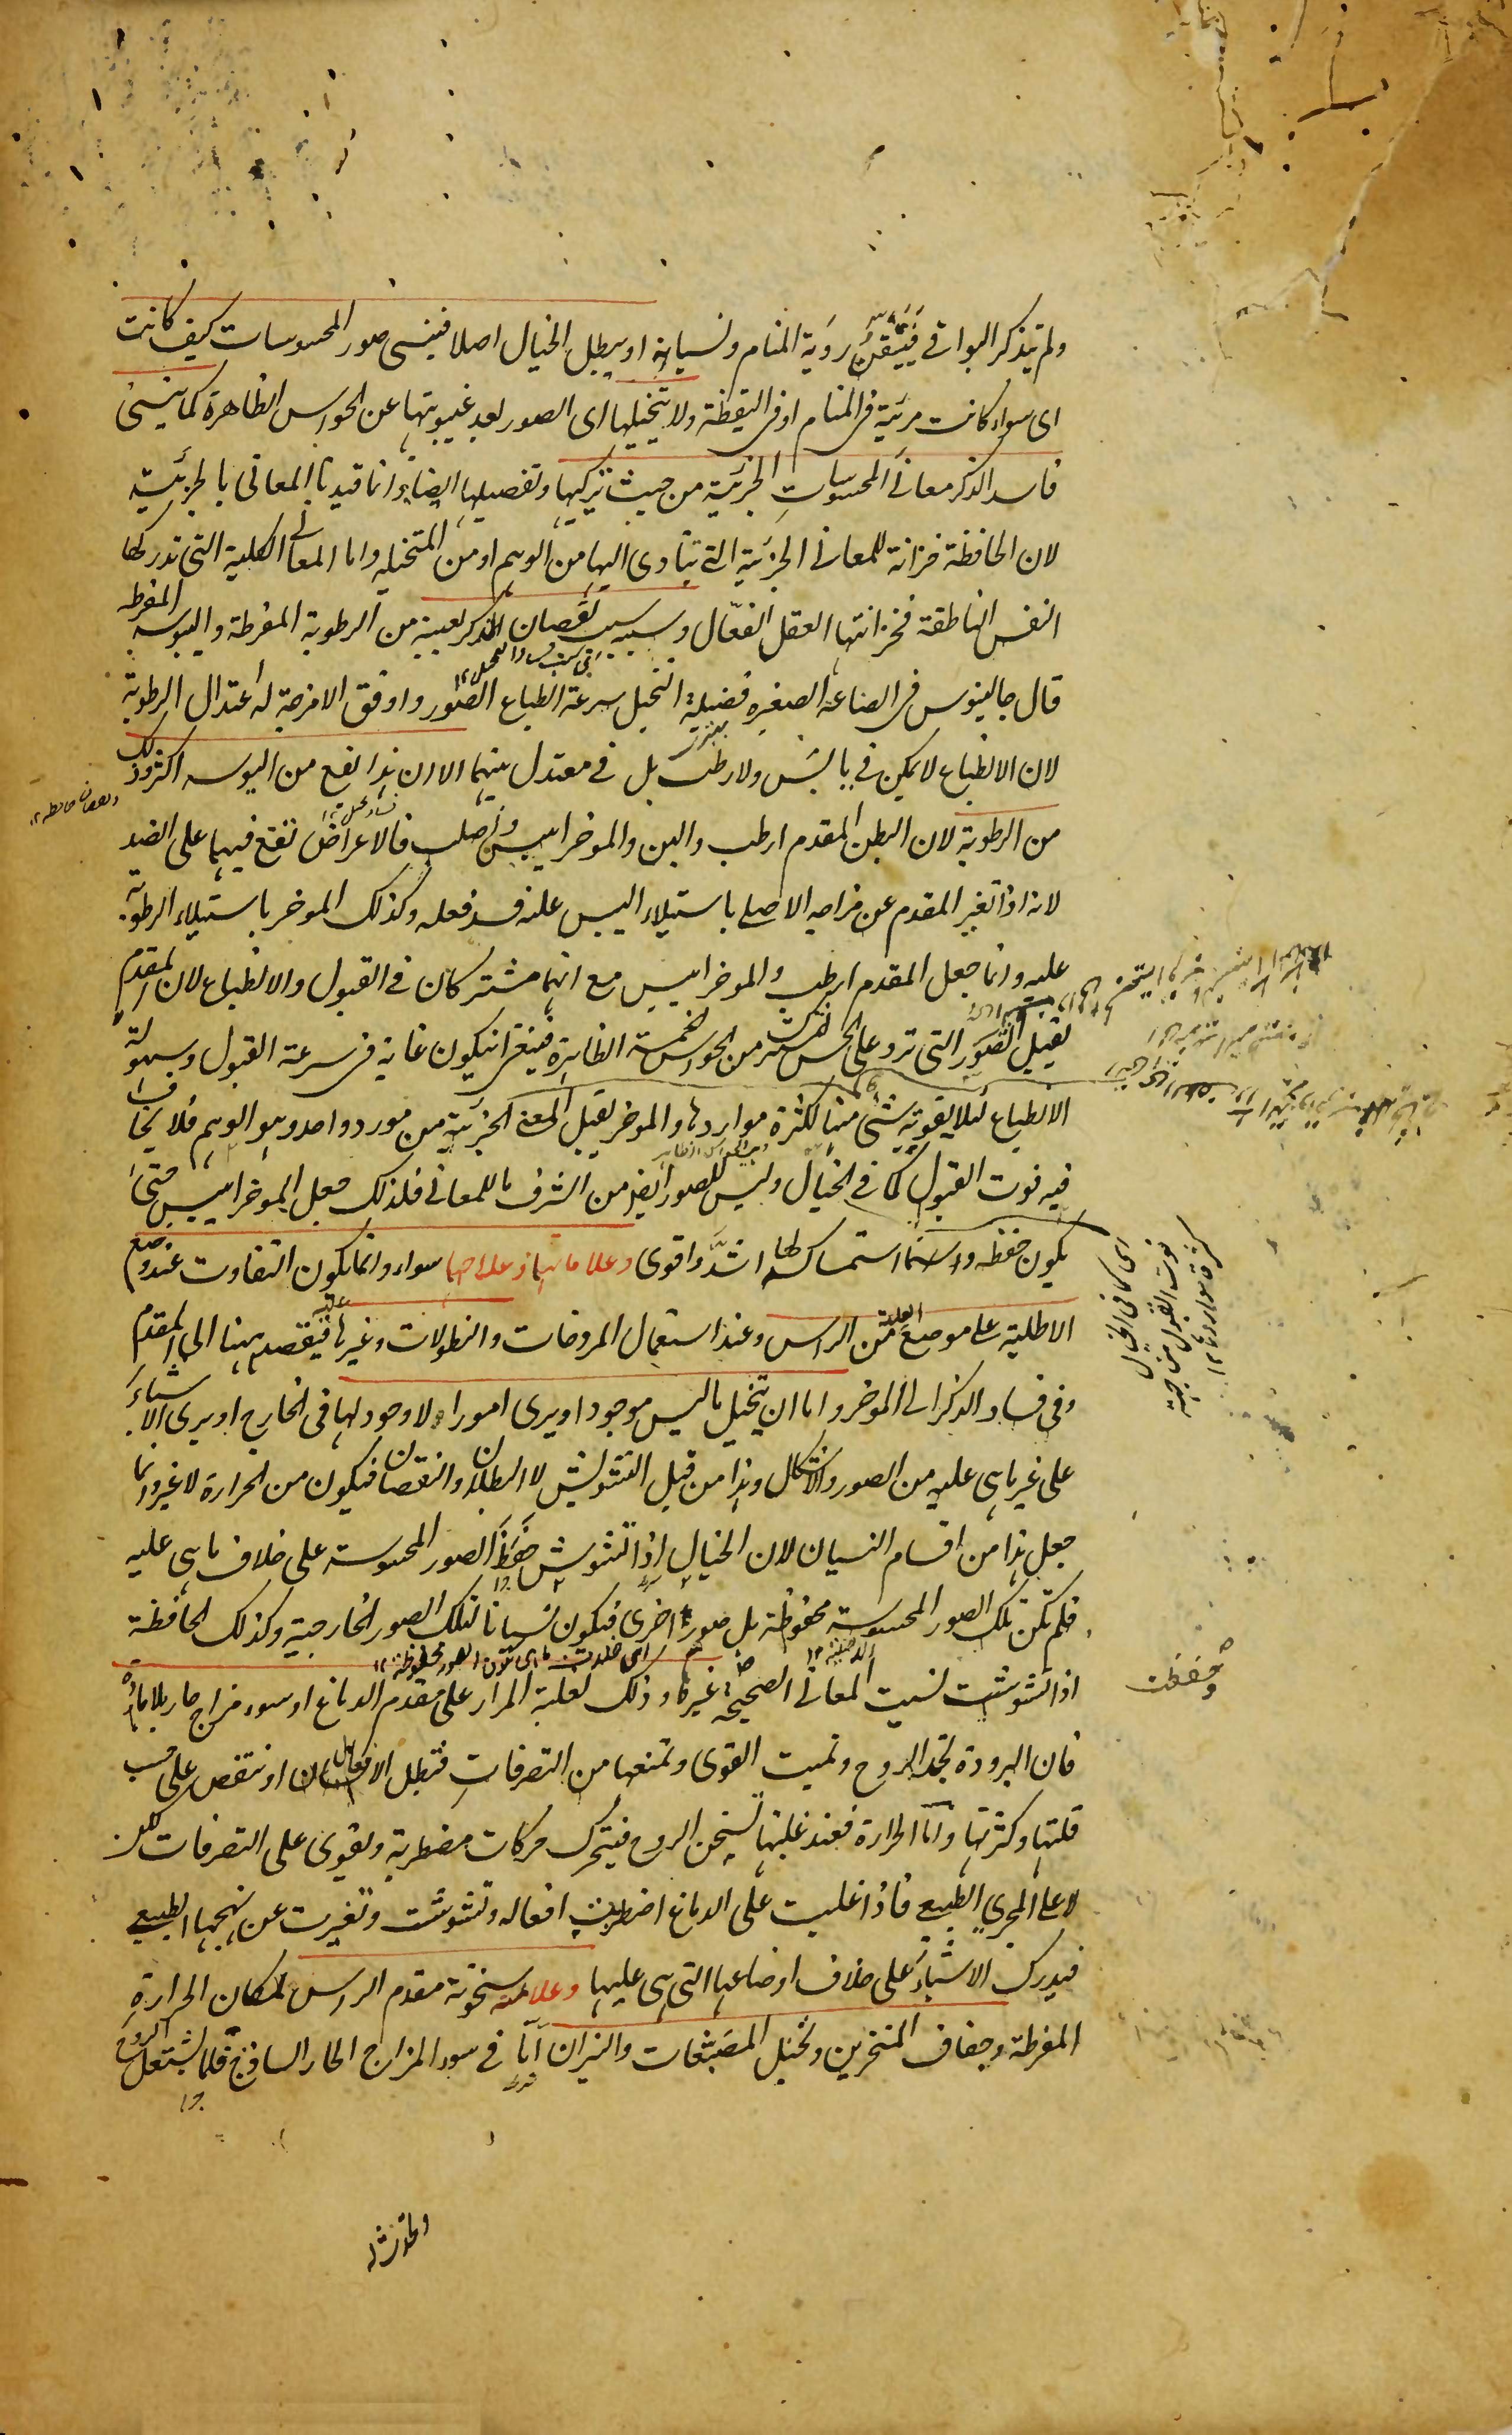 ولم يتذكر البواقي فيتيقن روية المنام ونسيانه او يبطل الخيال اصلا فينسى صور المحسوسات كيف كانت
اى سواء كانت مرئية فى المنام او فى اليقظة ولا يتخيلها اى الصور بعد غيبوبتها عن الحواس الظاهرة كما ينسى
فاسد الذكر معانى المحسوسات الجزئية من حيث تركيبها وتفصيلها ايضا وانما قيدنا المعانى بالجزئية
لان الحافظة خزانة للمعانى الجزئية التى تتأدى اليها من الوهم او من المتخيله واما المعانى الكلية التى تدركها
النفس الناطقة فخزانتها العقل الفعّال وسببه سبب نقصان الذكر بعينه من الرطوبة المفرطة واليبوسه المفرطه
قال جالينوس فى الصناعة الصغيره فضيلة التخيل سرعة انطباع الصور واوفق الامزجة له اعتدال الرطوبة
لان الانطباع لا يمكن فى يابس ولا رطب بل فى معتدل بينهما الا ان هذا يقع من اليبوسه اكثر وذلك
من الرطوبة لان البطن المقدم ارطب والين والموخر ايبس واصلب فالاعراض تقع فيهما على الضد
لانه اذا تغير المقدم عن مزاجه الاصلى باستيلاء اليبس عليه فسد فعله وكذلك الموخر باستيلاء الرطوبة
عليه وانما جعل المقدم ارطب والموخر ايبس مع انهما مشتركان فى القبول والانطباع لان المقدم
يقبل الصور التى ترد على الحس المشترك من الحواس الخمسة الظاهرة فينبغى ان يكون غاية فى سرعة القبول وسهولة
الانطباع لئلا يفوته شئ منها لكثرة مواردها والموخر يقبل المعنى الجزئية من مورد واحد وهو الوهم فلا يخاف
فيه فوت القبول كما فى الخيال وليس للصور ايضا من الشرف ما للمعانى فلذلك جعل الموخر ايبس حتى
يكون حفظه واستمساكه لها اشدّ واقوى وعلاماتها وعلاجها سواء وانما يكون التفاوت عند وضع
الاطلية على موضع العلة من الراس وعند استعمال المروخات والنطولات وغيرها فيقصد ههنا الى المقدم
وفى فساد الذكر الى الموخر واما ان يتخيل ما ليس موجودا ويرى امورا لا وجود لها فى الخارج او يرى الاشياء
على غير ما هى عليه من الصور والاشكال وهذا من قبيل التشويش لا البطلان والنقصان فيكون من الحرارة لا غير وانما
جعل هذا من اقسام النسيان لان الخيال اذا تشوش حفظ الصور المحسوسة على خلاف ما هى عليه
فلم تكن تلك الصور المحسوسة محفوظة بل صور اخرى فيكون نسيانا لتلك الصور الخارجية وكذلك الحافظة
اذا تشوشت نسيت المعانى الصحيحة غيرها وذلك لغلبة المرار على مقدم الدماغ او سوء مزاج حار بلا مادة
فان البرودة تجمد الروح وتميت القوى وتمنعها من التصرفات فتبطل الافعال او تنقص على حسب
قلتها وكثرتها واما الحرارة فعند غلبتها تسخن الروح فيتحرك حركات مضطربة ويقوى على التصرفات لكن
لا على المجرى الطبيعى فاذا غلبت على الدماغ اضطربت افعاله وتشوشت وتغيرت عن نهجها الطبيعى
فيدرك الاشياء على خلاف اوضاعها التى هى عليها وعلامته سخونة مقدم الراس لمكان الحرارة
المفرطة وجفاف المنخرين وتخيل المصبغات والنيران اما فى سوء المزاج الحار الساذج فلما يشتعل الروح
اى كما فى الخيال
فوت القبول من جهة
كثرة مواردها ١٢
وحفظت